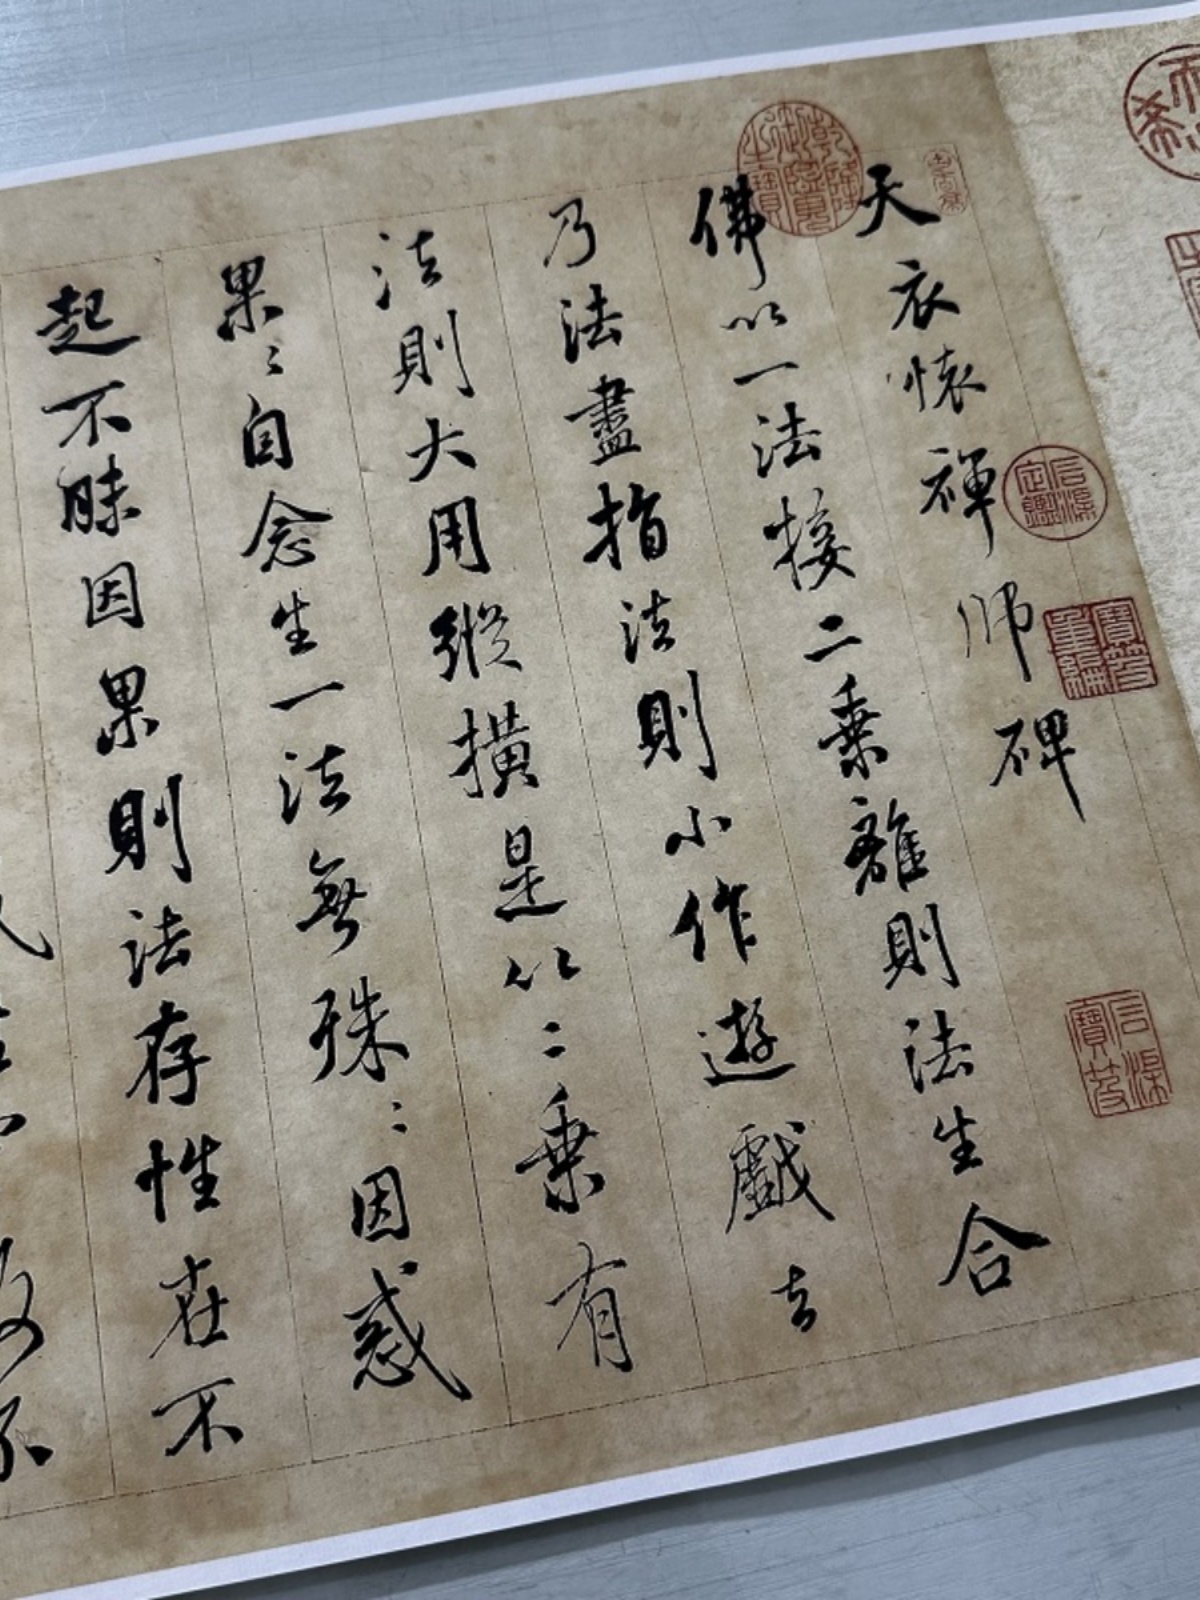 天衣懷禪師碑
佛以一法接二乘離則法生合
乃法盡指法則小作遊戲去
法則大用縱橫是以二乘有
果〻自念生一法無殊〻因惑
起不昧因果則法存性在不